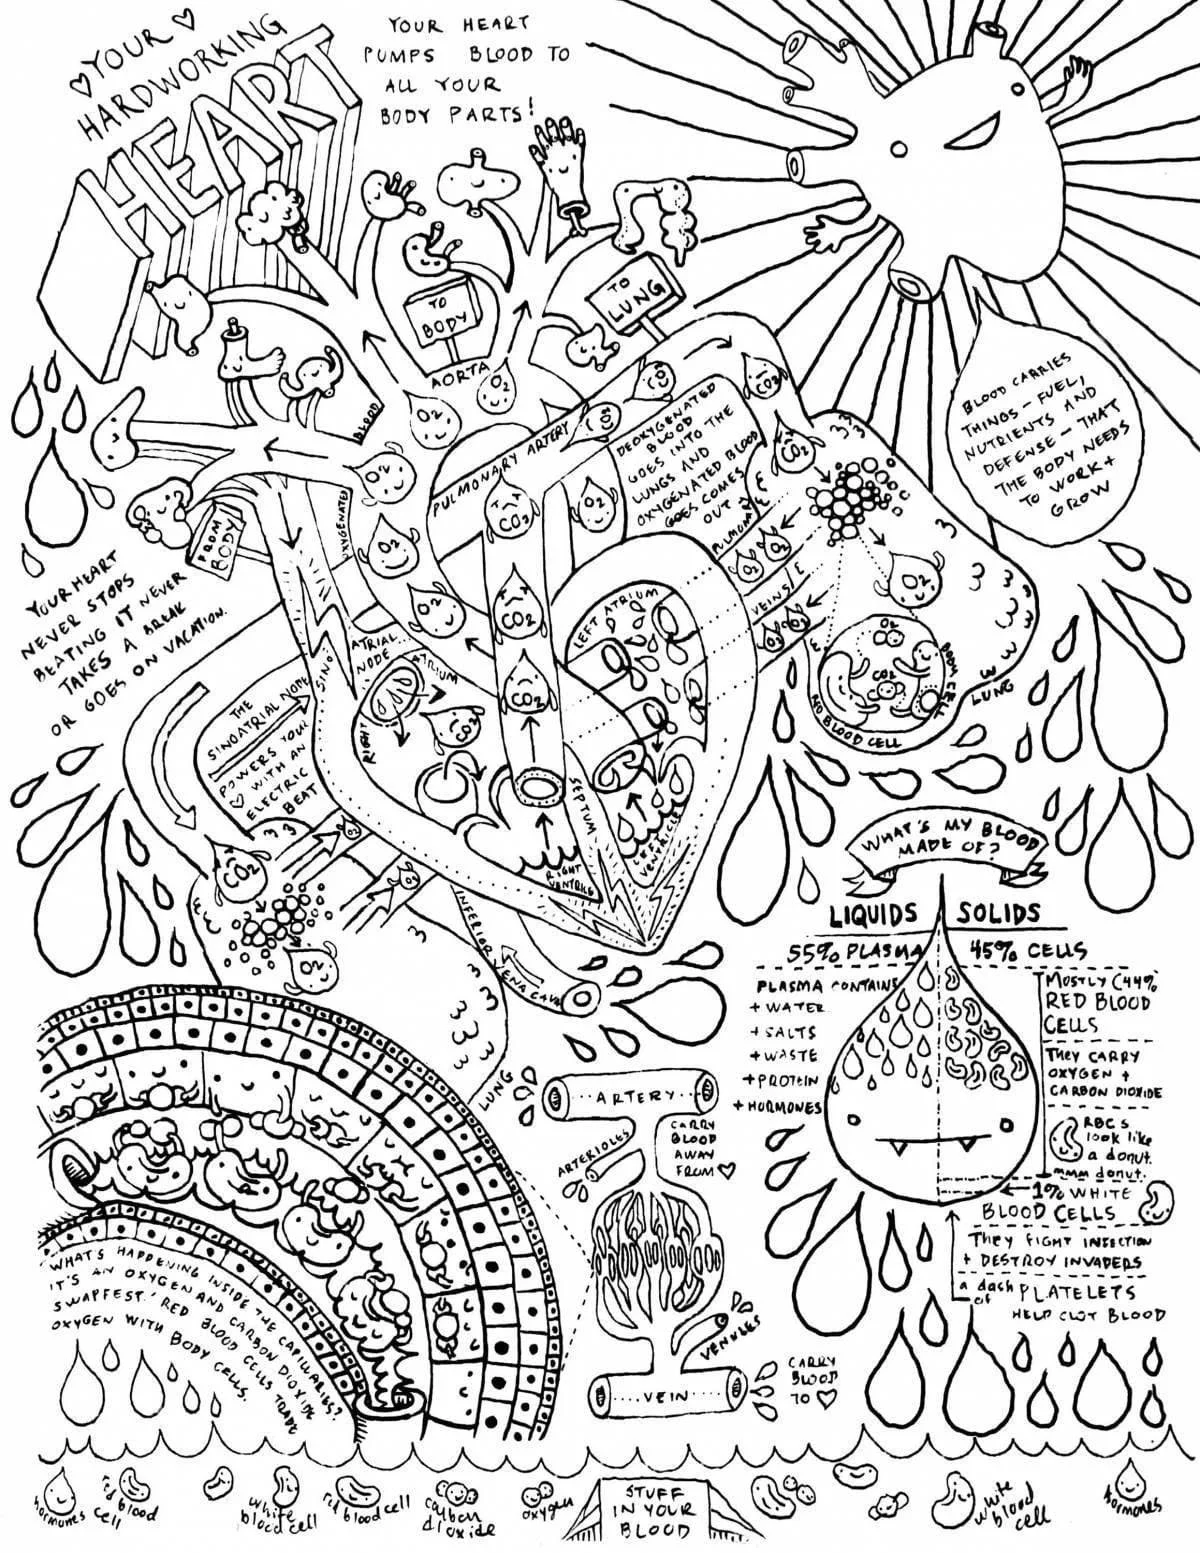 YOUR
HARDWORKING
HEART
YOUR HEART
PUMPS BLOOD TO
ALL YOUR
BODY PARTS!
TO
BODY
TO
LUNG
AORTA
BLOOD
OXYGENATED
O2
O2
O2
O2
O2
O2
PULMONARY ARTERY
CO2
CO2
CO2
CO2
CO2
CO2
CO2
DEOXYGENATED
BLOOD
GOES INTO THE
LUNGS AND
OXYGENATED BLOOD
GOES COMES
OUT
BLOOD CARRIES
THINGS - FUEL,
NUTRIENTS AND
DEFENSE - THAT
THE BODY NEEDS
TO WORK +
GROW
FROM
BODY
YOUR HEART
NEVER STOPS
BEATING IT NEVER
TAKES A BREAK
OR GOES ON VACATION.
THE
SINOATRIAL NODE
POWERS YOUR
WITH AN
ELECTRIC
BEAT
SINO
ATRIAL
NODE
RIGHT
ATRIUM
LEFT ATRIUM
CO2
SEPTUM
RIGHT
VENTRICLE
LEFT
VENTRICLE
PULMONARY
VEINS
O2
O2
O2
O2
O2
O2
CO2
BODY CELL
RED BLOOD CELL
LUNG
CO2
O2
O2
O2
INFERIOR VENA CAVA
LUNG
WHAT'S MY BLOOD
MADE OF?
LIQUIDS
SOLIDS
55% PLASMA
45% CELLS
PLASMA CONTAINS
+ WATER
+ SALTS
+ WASTE
+ PROTEIN
+ HORMONES
MOSTLY (44%
RED BLOOD
CELLS
THEY CARRY
OXYGEN +
CARBON DIOXIDE
RBCS
look like
a donut.
mmm donut.
1% WHITE
BLOOD CELLS
THEY FIGHT INFECTION
+ DESTROY INVADERS
a dash
of
PLATELETS
HELP CLOT BLOOD
ARTERY
CARRY
BLOOD
AWAY
FROM
ARTERIOLES
VENULES
VEIN
CARRY
BLOOD
TO
WHAT'S HAPPENING INSIDE THE CAPILLARIES?
IT'S AN OXYGEN AND CARBON DIOXIDE
SWAPFEST! RED BLOOD CELLS TRADE
OXYGEN WITH BODY CELLS.
hormones
red blood
cell
white
blood cell
red blood cell
carbon
dioxide
oxygen
STUFF
IN YOUR
BLOOD
white
blood
cell
hormones